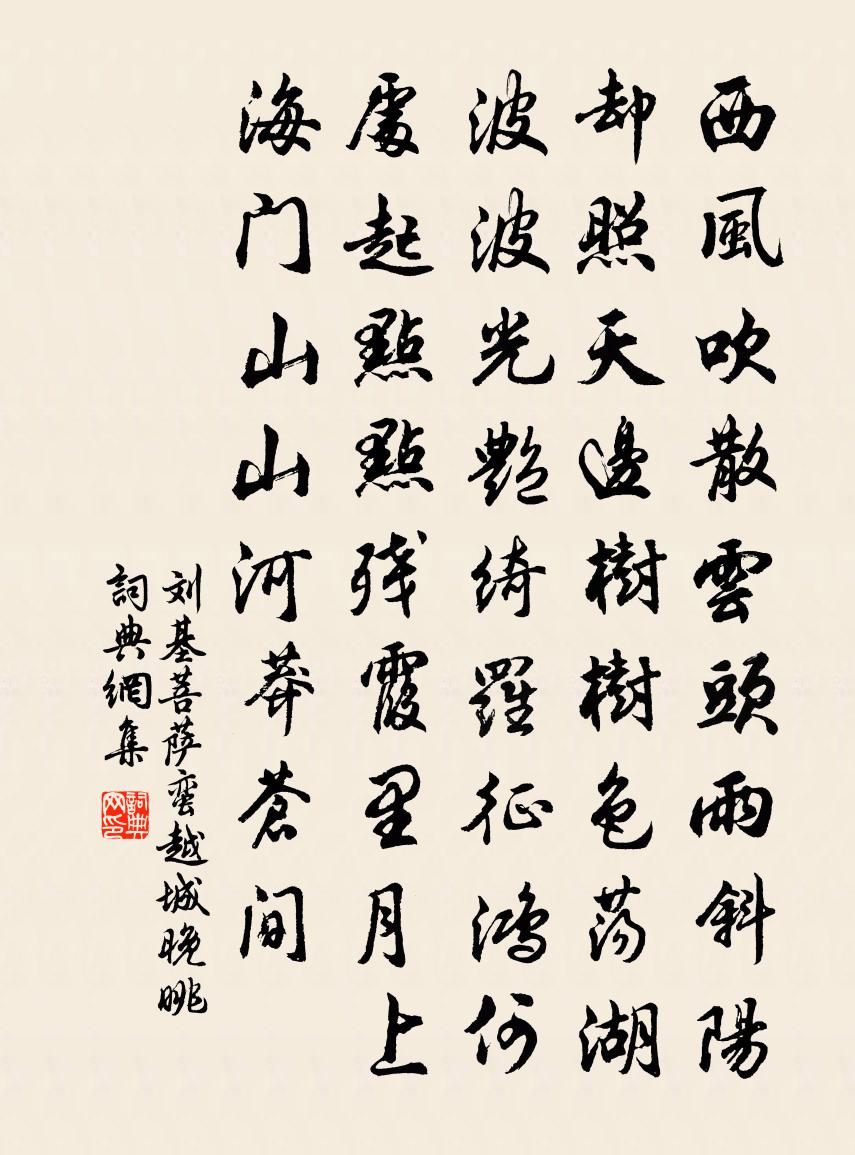 西風吹散雲頭雨斜陽
却照天邊樹樹色荡湖
波波光艷綺羅征鴻何
處起點點残霞里月上
海门山山河莽蒼间
刘基菩萨蛮越城晚眺
詞典網集
詞典网印